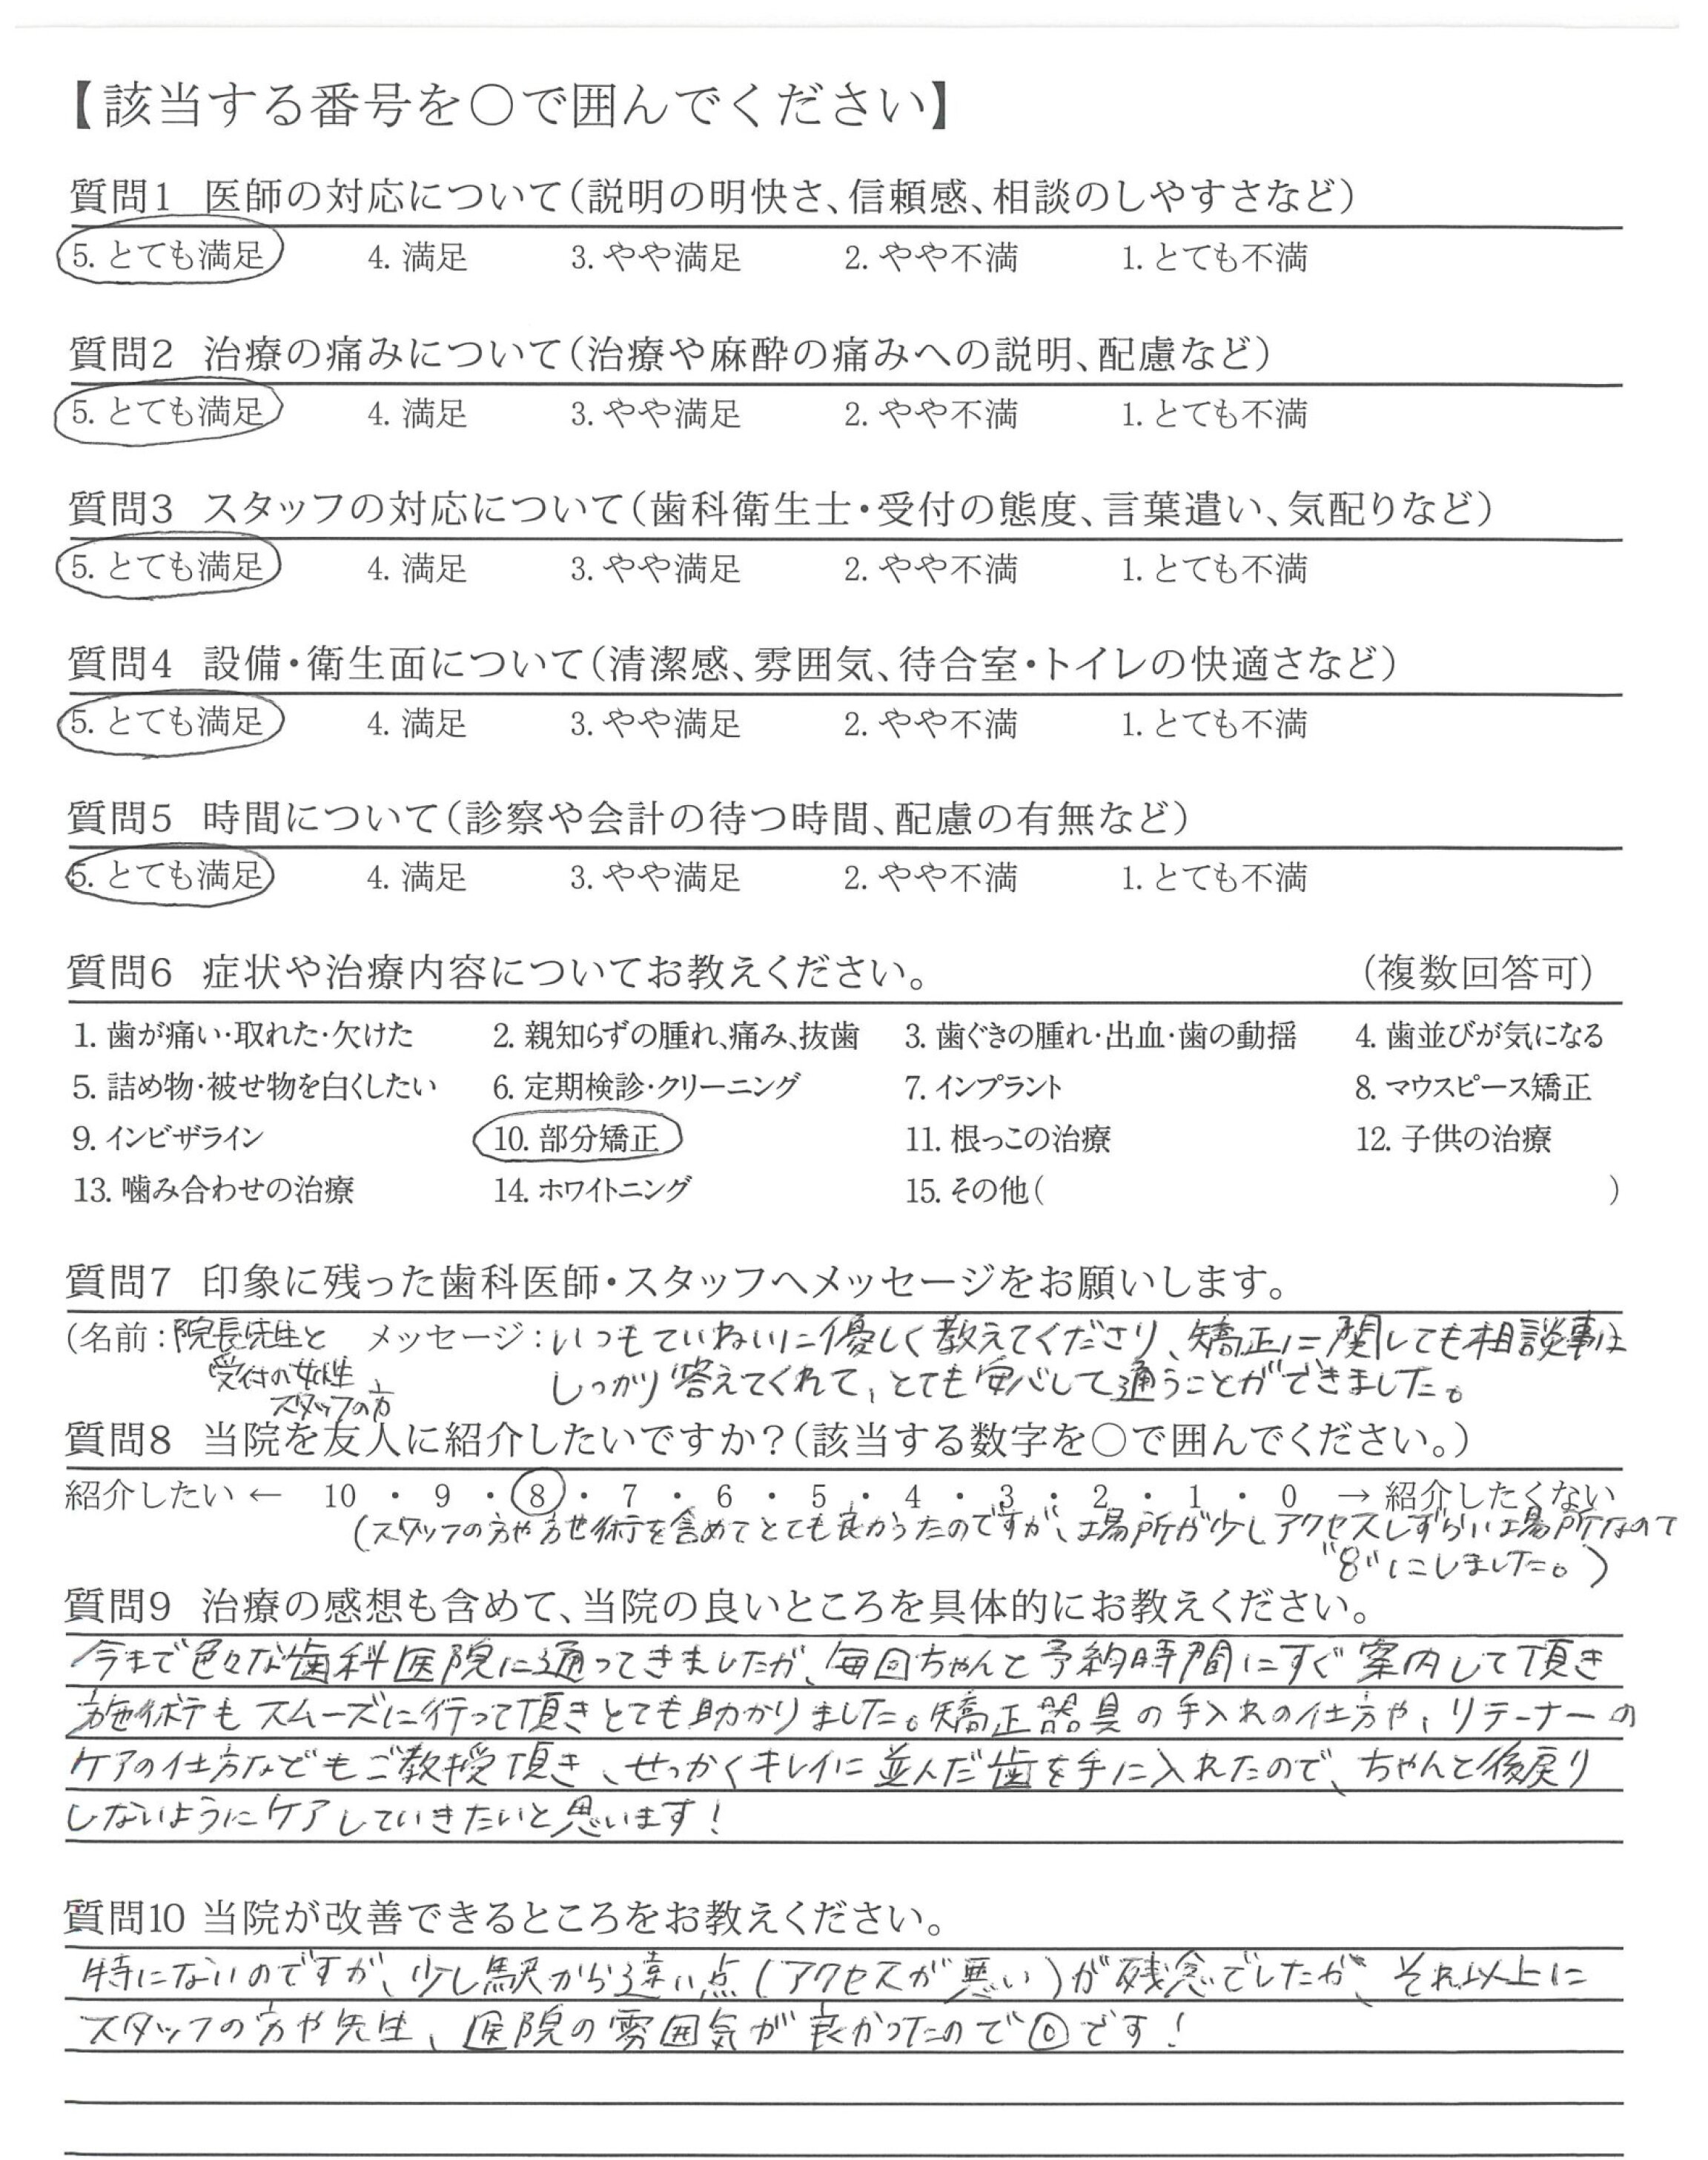 【該当する番号を○で囲んでください】
質問1 医師の対応について(説明の明快さ、信頼感、相談のしやすさなど)
5. とても満足 4. 満足 3. やや満足 2. やや不満 1. とても不満
質問2 治療の痛みについて(治療や麻酔の痛みへの説明、配慮など)
5. とても満足 4. 満足 3. やや満足 2. やや不満 1. とても不満
質問3 スタッフの対応について(歯科衛生士・受付の態度、言葉遣い、気配りなど)
5. とても満足 4. 満足 3. やや満足 2. やや不満 1. とても不満
質問4 設備・衛生面について(清潔感、雰囲気、待合室・トイレの快適さなど)
5. とても満足 4. 満足 3. やや満足 2. やや不満 1. とても不満
質問5 時間について(診察や会計の待つ時間、配慮の有無など)
5. とても満足 4. 満足 3. やや満足 2. やや不満 1. とても不満
質問6 症状や治療内容についてお教えください。 (複数回答可)
1. 歯が痛い・取れた・欠けた 2. 親知らずの腫れ、痛み、抜歯 3. 歯ぐきの腫れ・出血・歯の動揺 4. 歯並びが気になる
5. 詰め物・被せ物を白くしたい 6. 定期検診・クリーニング 7. インプラント 8. マウスピース矯正
9. インビザライン 10. 部分矯正 11. 根っこの治療 12. 子供の治療
13. 噛み合わせの治療 14. ホワイトニング 15. その他( )
質問7 印象に残った歯科医師・スタッフへメッセージをお願いします。
(名前:院長先生と メッセージ:いつもていねいに優しく教えてくださり、矯正に関しても相談事は
受付の女性 しっかり答えてくれて、とても安心して通うことができました。
スタッフの方
質問8 当院を友人に紹介したいですか?(該当する数字を○で囲んでください。)
紹介したい ← 10 ・ 9 ・ 8 ・ 7 ・ 6 ・ 5 ・ 4 ・ 3 ・ 2 ・ 1 ・ 0 → 紹介したくない
(スタッフの方や施術を含めてとても良かったのですが、場所が少しアクセスしずらい場所なので
"8"にしました。)
質問9 治療の感想も含めて、当院の良いところを具体的にお教えください。
今まで色々な歯科医院に通ってきましたが、毎回ちゃんと予約時間にすぐ案内して頂き
施術もスムーズに行って頂きとても助かりました。矯正器具の手入れの仕方や、リテーナーの
ケアの仕方などもご教授頂き、せっかくキレイに並んだ歯を手に入れたので、ちゃんと後戻り
しないようにケアしていきたいと思います!
質問10 当院が改善できるところをお教えください。
特にないのですが、少し駅から遠い点(アクセスが悪い)が残念でしたが、それ以上に
スタッフの方や先生、医院の雰囲気が良かったので◎です!